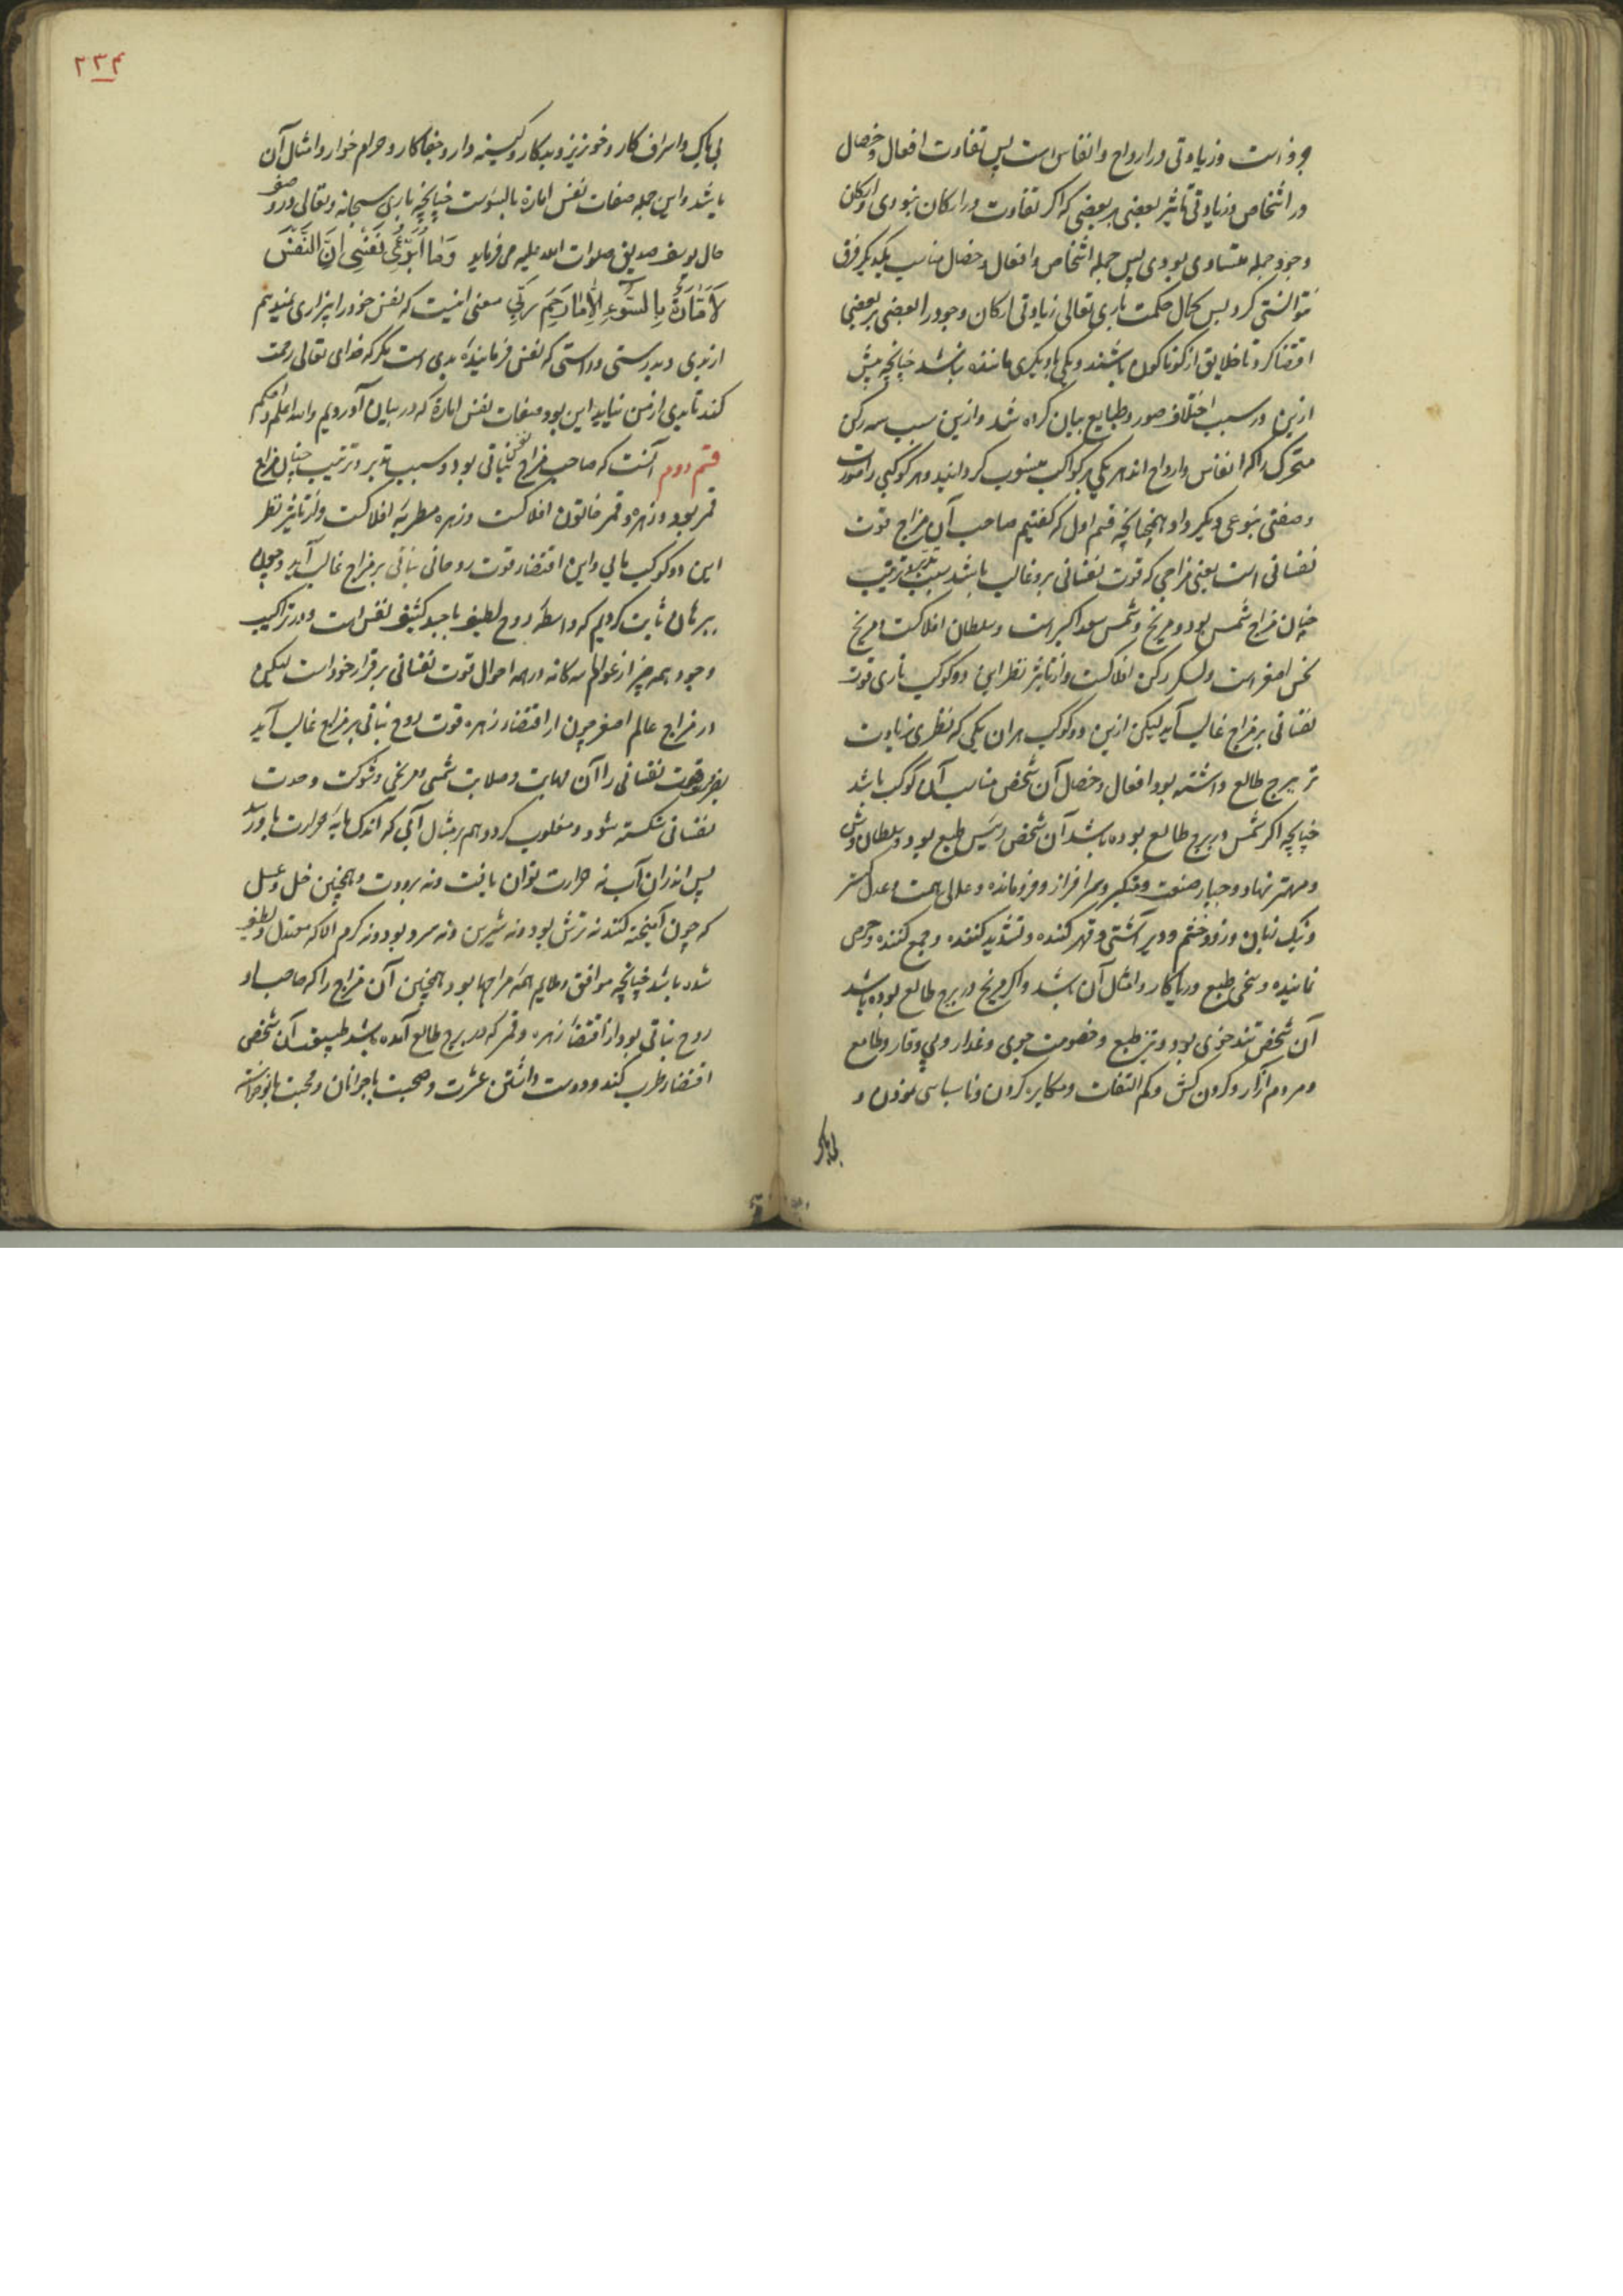 وز است وزیادتی در ارواح وانفاس است پس تفاوت افعال وخصال
در اشخاص وزیادتی تاثیر بعضی بر بعضی که اکر تفاوت در ارکان نبودی وارکان
وجود جمله متساوی بودی پس جمله اشخاص وافعال وخصال مناسب یکدیکر فرق
نتوانستی کرد پس کمال حکمت باری تعالی زیادتی ارکان وجود را بعضی بر بعضی
اقتضا کرد تا خلایق از کوناکون باشند ویکی با دیکری ماننده نباشد چنانچه پیش
ازین در سبب اختلاف صور وطبایع بیان کرده شد وازین سبب سه رکن
متحرک را که انفاس وارواح اند هر یکی بر کواکب منسوب کردانید وهر کوکبی را
وصفتی بنوعی دیکر داد همچنانچه قسم اول که کفتیم صاحب آن مزاج قوت
نفسانی است یعنی مزاجی که قوت نفسانی برو غالب باشد بسبب تدبیر وترتیب
چنان مزاج شمس بود ومریخ وشمس سعد اکبر است وسلطان افلاکست ومریخ
نحس اصغر است ولشکر رکن افلاکست واز تاثیر نظر این دو کوکب ناری قوت
نفسانی بر مزاج غالب آید لیکن ازین دو کوکب هر آن یکی که نظری زیادت
تر ببرج طالع داشته بود افعال وخصال آن شخص مناسب آن کوکب باشد
چنانچه اکر شمس در برج طالع بوده باشد آن شخص رئیس طبع بود وسلطان وش
ومهتر نهاد وجبار صفت ومتکبر وسرافراز وفرمانده وعالی همت وعدل کستر
ونیک نیان وزود خشم ودیر آشتی وقهر کننده وتشدید کننده وجمع کننده وحرص
نماینده وسخی طبع وریاکار وامثال آن باشد واکر مریخ در برج طالع بوده باشد
آن شخص تند خوی بود وتیز طبع وخصومت جوی وغدار وبی وقار وطامع
ومردم آزار وکردن کش وکم التفات ومکابره کردن وناسپاسی نمودن و
بی باک
۲۳۴
بی باک واسراف کار وخونریز وبدکار وکینه دار وجفاکار وحرام خوار وامثال آن
باشد واین جمله صفات نفس اماره بالسوست چنانچه باری سبحانه وتعالی در وصف
حال یوسف صدیق صلوات الله علیه می فرماید وَمَا اُبَرِّئُ نَفْسِی اِنَّ النَّفْسَ
لَاَمَّارَةٌ بِالسُّوءِ اِلَّا مَا رَحِمَ رَبِّی معنی اینست که نفس خود را بیزاری نمیدهم
از بدی وبدرستی وراستی که نفس فرماینده بدی است مکر که خدای تعالی رحمت
کند تا بدی از من نیاید این بود صفات نفس اماره که در بیان آوردیم والله اعلم واحکم
قسم دوم آنست که صاحب مزاج نفس نباتی بود وسبب تدبیر وترتیب چنان مزاج
قمر بود وزهره وقمر خاتون افلاکست وزهره مطربه افلاکست واز تاثیر نظر
این دو کوکب مایی واین اقتضاء قوت روحانی نباتی بر مزاج غالب آید وچون
ببرهان ثابت کردیم که واسطه روح لطیف با جسد کثیف نفس است ودر تراکیب
وجود همه چیز از عوالم سه کانه در همه احوال قوت نفسانی بر قرار خود است لیکن
در مزاج عالم اصغر چون از اقتضاء زهره قوت روح نباتی بر مزاج غالب آید
بضرورت قوت نفسانی را آن مهابت وصلابت شمسی ومریخی وشوکت وحدت
نفسانی شکسته شود ومغلوب کردد هم بر مثال آبی که اندک مایه حرارت باو رسد
پس اندران آب نه حرارت توان یافت ونه برودت وهمچنین خل وعسل
که چون آمیخته کنند نه ترش بود ونه شیرین ونه سرد بود ونه کرم الا که معتدل ولطیف
شده باشد چنانچه موافق وملایم همه مزاجها بود وهمچنین آن مزاج را که صاحب او
روح نباتی بود از اقتضاء زهره وقمر که در برج طالع آمده باشد طبیعت آن شخص
اقتضاء طرب کند ودوست داشتن عشرت وصحبت با جوانان ومحبت با نوخواسته